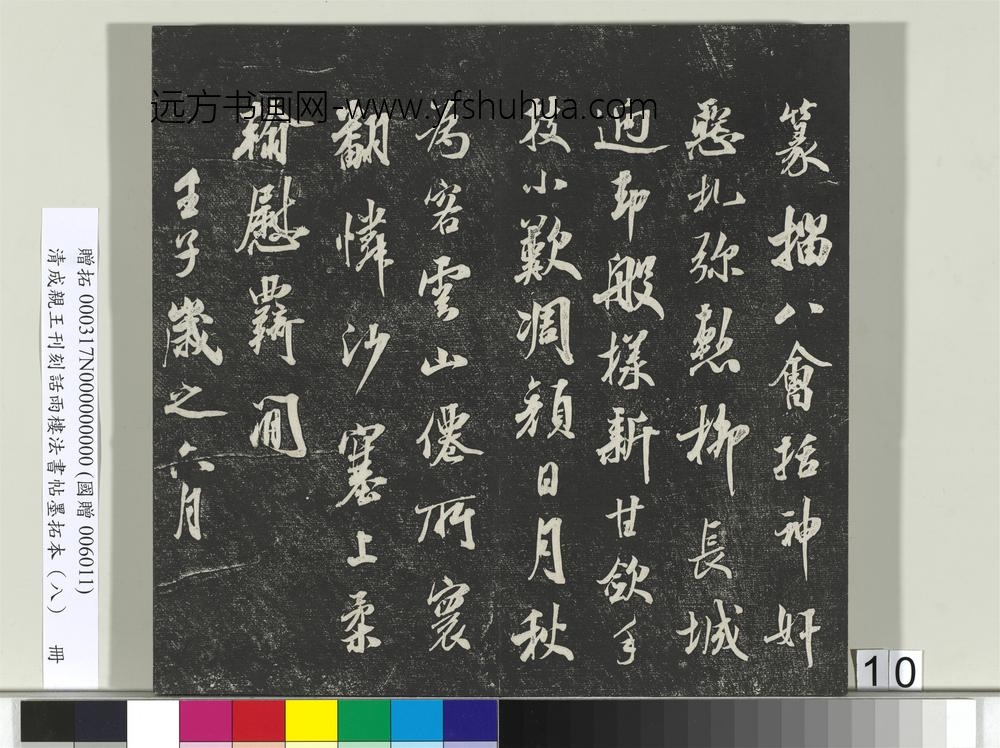 篆擂八會括神奸
惡札弥懃柳長城
迥却般樣新甘斂手
技小歎凋顏日月秋
為客雲山僊所寰
翻憐沙塞上柔
翰慰羇閒
壬子歲之六月
远方书画网-www.yfshuhua.com
贈拓 000317N000000000(國贈 006011)
清成親王刊刻話雨樓法書帖墨拓本(八) 冊
10